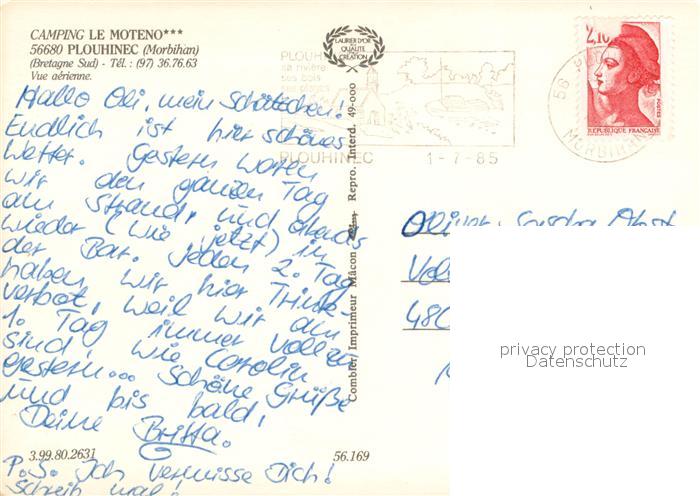 CAMPING LE MOTENO***
56680 PLOUHINEC (Morbihan)
(Bretagne Sud) - Tél. : (97) 36.76.63
Vue aérienne.
LAURIER D'OR
de la QUALITÉ
de la CRÉATION
2,10
REPUBLIQUE FRANÇAISE
POSTES
56
MORBIHAN
PLOUH
sa rivière
ses bois
ses plages
PLOUHINEC 1-7-85
Hallo Oli, mein Schätzchen!
Endlich ist hier schönes
Wetter. Gestern waren
wir den ganzen Tag
am Strand, und abends
wieder (wie jetzt) in
der Bar. Jeden 2. Tag
haben wir hier Trink-
verbot, weil wir am
1. Tag immer voll zu
sind, wie Carolin
gestern... Schöne Grüße
und bis bald,
Deine Britta.
P.S. Ich vermisse Dich!
Schreib mal!
Combier Imprimeur Mâcon Repro. Interd. 49-000
Oliver
480
privacy protection
Datenschutz
3.99.80.2631
56.169